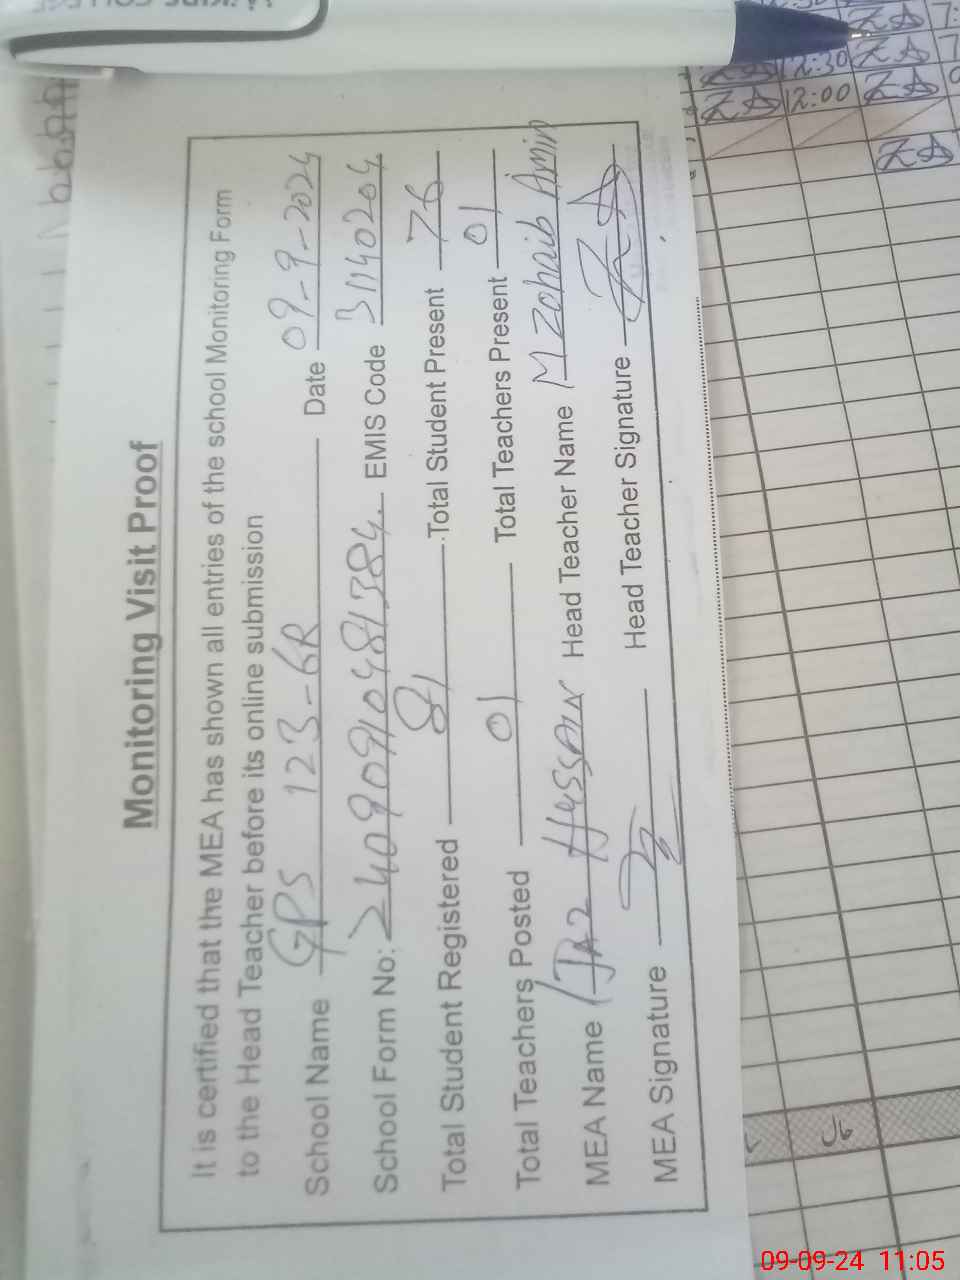 Monitoring Visit Proof
It is certified that the MEA has shown all entries of the school Monitoring Form
to the Head Teacher before its online submission
School Name GPS 123-6R Date 09-9-2024
School Form No: EMIS Code 31140204
Total Student Registered 81 Total Student Present 76
Total Teachers Posted 01 Total Teachers Present 01
MEA Name Hussain Head Teacher Name M Zohaib Amin
MEA Signature Head Teacher Signature ZA
ZA 7:
12:30 ZA 7
ZA 12:00 ZA
ZA
09-09-24 11:05